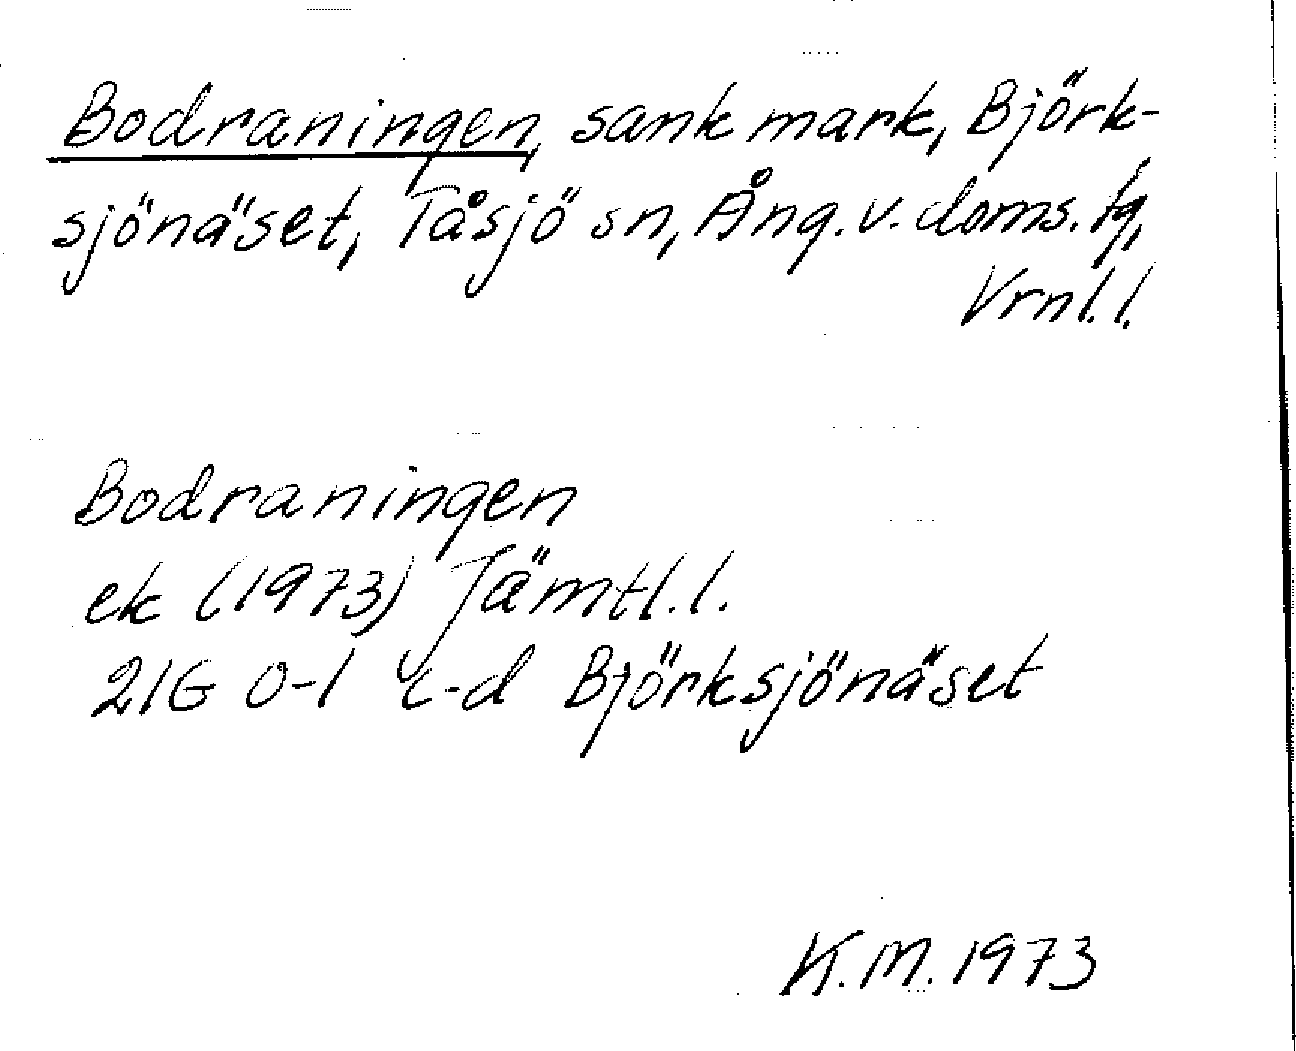 Bodraningen, sank mark, Björk-
sjönäset, Tåsjö sn, Ång. v. doms. tg,
Vrnl. l.
Bodraningen
ek (1973) Jämtl. l.
21G 0-1 c-d Björksjönäset
K.M. 1973